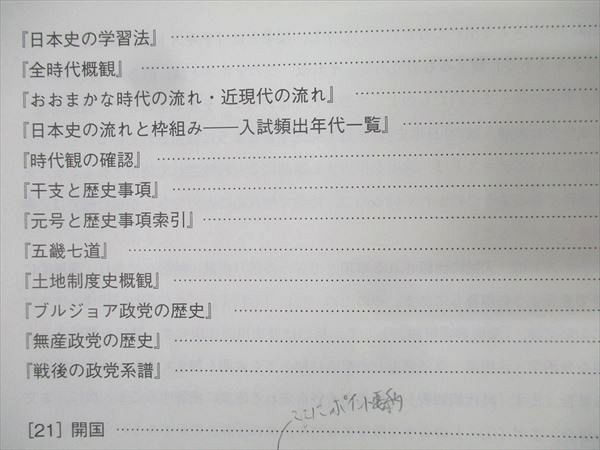 『日本史の学習法』
『全時代概観』
『おおまかな時代の流れ・近現代の流れ』
『日本史の流れと枠組み――入試頻出年代一覧』
『時代観の確認』
『干支と歴史事項』
『元号と歴史事項索引』
『五畿七道』
『土地制度史概観』
『ブルジョア政党の歴史』
『無産政党の歴史』
『戦後の政党系譜』
ここにポイント
[21] 開国